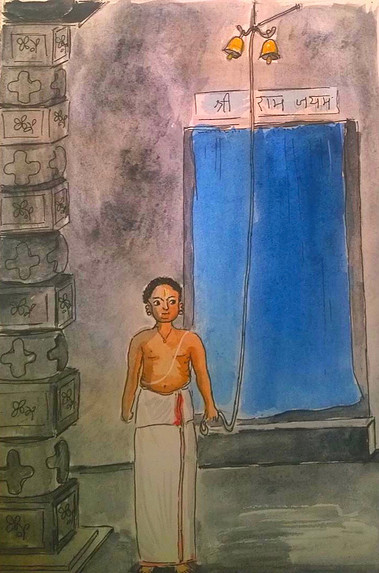 श्री राम जयम